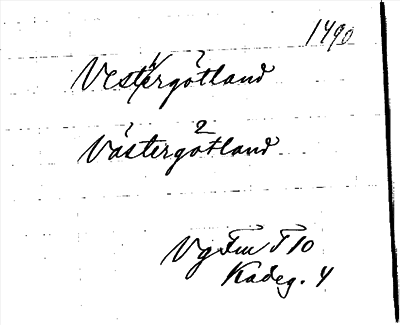 1490
Vestergötland
2
Västergötland
Vg Fm T 10
Kadeg. 4